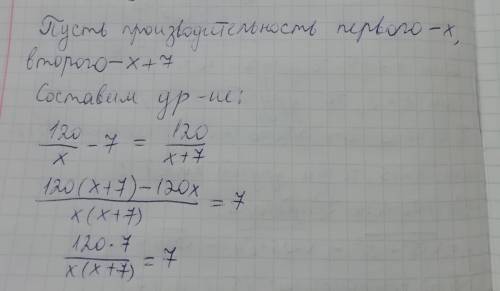 Пусть производительность первого - x,
второго - x+7
Составим ур-ие:
120/x - 7 = 120/(x+7)
(120(x+7)-120x)/(x(x+7)) = 7
(120·7)/(x(x+7)) = 7